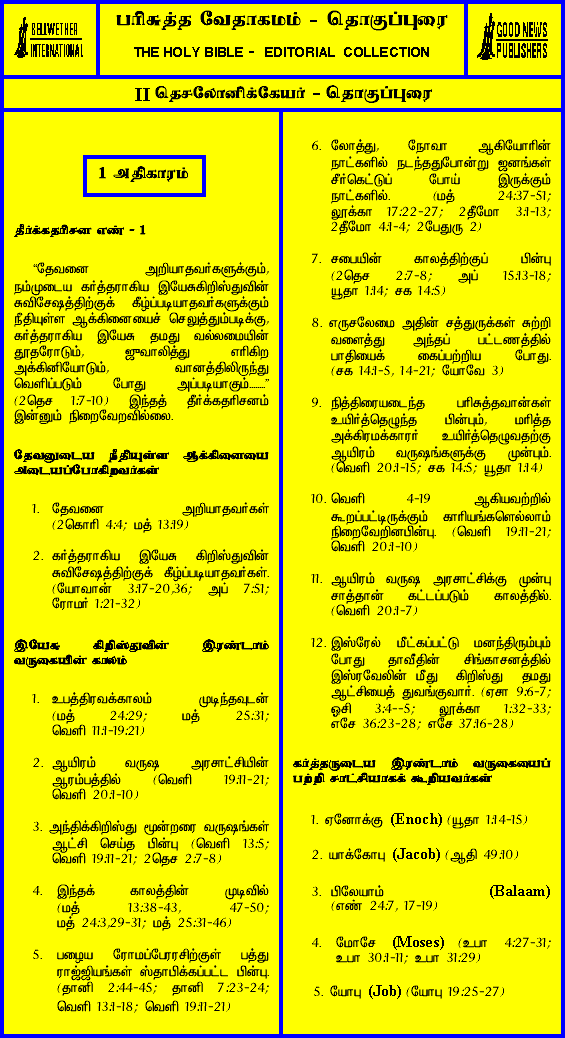 BELLWETHER
INTERNATIONAL
பரிசுத்த வேதாகமம் - தொகுப்புரை
THE HOLY BIBLE - EDITORIAL COLLECTION
GOOD NEWS
PUBLISHERS
II தெசலோனிக்கேயர் - தொகுப்புரை
1 அதிகாரம்
தீர்க்கதரிசன எண் - 1
“தேவனை அறியாதவர்களுக்கும்,
நம்முடைய கர்த்தராகிய இயேசுகிறிஸ்துவின்
சுவிசேஷத்திற்குக் கீழ்ப்படியாதவர்களுக்கும்
நீதியுள்ள ஆக்கினையைச் செலுத்தும்படிக்கு,
கர்த்தராகிய இயேசு தமது வல்லமையின்
தூதரோடும், ஜுவாலித்து எரிகிற
அக்கினியோடும், வானத்திலிருந்து
வெளிப்படும் போது அப்படியாகும்........”
(2தெச 1:7-10) இந்தத் தீர்க்கதரிசனம்
இன்னும் நிறைவேறவில்லை.
தேவனுடைய நீதியுள்ள ஆக்கினையை
அடையப்போகிறவர்கள்
1. தேவனை அறியாதவர்கள்
(2கொரி 4:4; மத் 13:19)
2. கர்த்தராகிய இயேசு கிறிஸ்துவின்
சுவிசேஷத்திற்குக் கீழ்ப்படியாதவர்கள்.
(யோவான் 3:17-20,36; அப் 7:51;
ரோமர் 1:21-32)
இயேசு கிறிஸ்துவின் இரண்டாம்
வருகையின் காலம்
1. உபத்திரவக்காலம் முடிந்தவுடன்
(மத் 24:29; மத் 25:31;
வெளி 11:1-19:21)
2. ஆயிரம் வருஷ அரசாட்சியின்
ஆரம்பத்தில் (வெளி 19:11-21;
வெளி 20:1-10)
3. அந்திக்கிறிஸ்து மூன்றரை வருஷங்கள்
ஆட்சி செய்த பின்பு (வெளி 13:5;
வெளி 19:11-21; 2தெச 2:7-8)
4. இந்தக் காலத்தின் முடிவில்
(மத் 13:38-43, 47-50;
மத் 24:3,29-31; மத் 25:31-46)
5. பழைய ரோமப்பேரரசிற்குள் பத்து
ராஜ்ஜியங்கள் ஸ்தாபிக்கப்பட்ட பின்பு.
(தானி 2:44-45; தானி 7:23-24;
வெளி 13:1-18; வெளி 19:11-21)
6. லோத்து, நோவா ஆகியோரின்
நாட்களில் நடந்ததுபோன்று ஜனங்கள்
சீர்கெட்டுப் போய் இருக்கும்
நாட்களில். (மத் 24:37-51;
லூக்கா 17:22-27; 2தீமோ 3:1-13;
2தீமோ 4:1-4; 2பேதுரு 2)
7. சபையின் காலத்திற்குப் பின்பு
(2தெச 2:7-8; அப் 15:13-18;
யூதா 1:14; சக 14:5)
8. எருசலேமை அதின் சத்துருக்கள் சுற்றி
வளைத்து அந்தப் பட்டணத்தில்
பாதியைக் கைப்பற்றிய போது.
(சக 14:1-5, 14-21; யோவே 3)
9. நித்திரையடைந்த பரிசுத்தவான்கள்
உயிர்த்தெழுந்த பின்பும், மரித்த
அக்கிரமக்காரர் உயிர்த்தெழுவதற்கு
ஆயிரம் வருஷங்களுக்கு முன்பும்.
(வெளி 20:1-15; சக 14:5; யூதா 1:14)
10. வெளி 4-19 ஆகியவற்றில்
கூறப்பட்டிருக்கும் காரியங்களெல்லாம்
நிறைவேறினபின்பு. (வெளி 19:11-21;
வெளி 20:1-10)
11. ஆயிரம் வருஷ அரசாட்சிக்கு முன்பு
சாத்தான் கட்டப்படும் காலத்தில்.
(வெளி 20:1-7)
12. இஸ்ரேல் மீட்கப்பட்டு மனந்திரும்பும்
போது தாவீதின் சிங்காசனத்தில்
இஸ்ரவேலின் மீது கிறிஸ்து தமது
ஆட்சியைத் துவங்குவார். (ஏசா 9:6-7;
ஓசி 3:4--5; லூக்கா 1:32-33;
எசே 36:23-28; எசே 37:16-28)
கர்த்தருடைய இரண்டாம் வருகையைப்
பற்றி சாட்சியாகக் கூறியவர்கள்
1. ஏனோக்கு (Enoch) (யூதா 1:14-15)
2. யாக்கோபு (Jacob) (ஆதி 49:10)
3. பிலேயாம் (Balaam)
(எண் 24:7, 17-19)
4. மோசே (Moses) (உபா 4:27-31;
உபா 30:1-11; உபா 31:29)
5. யோபு (Job) (யோபு 19:25-27)